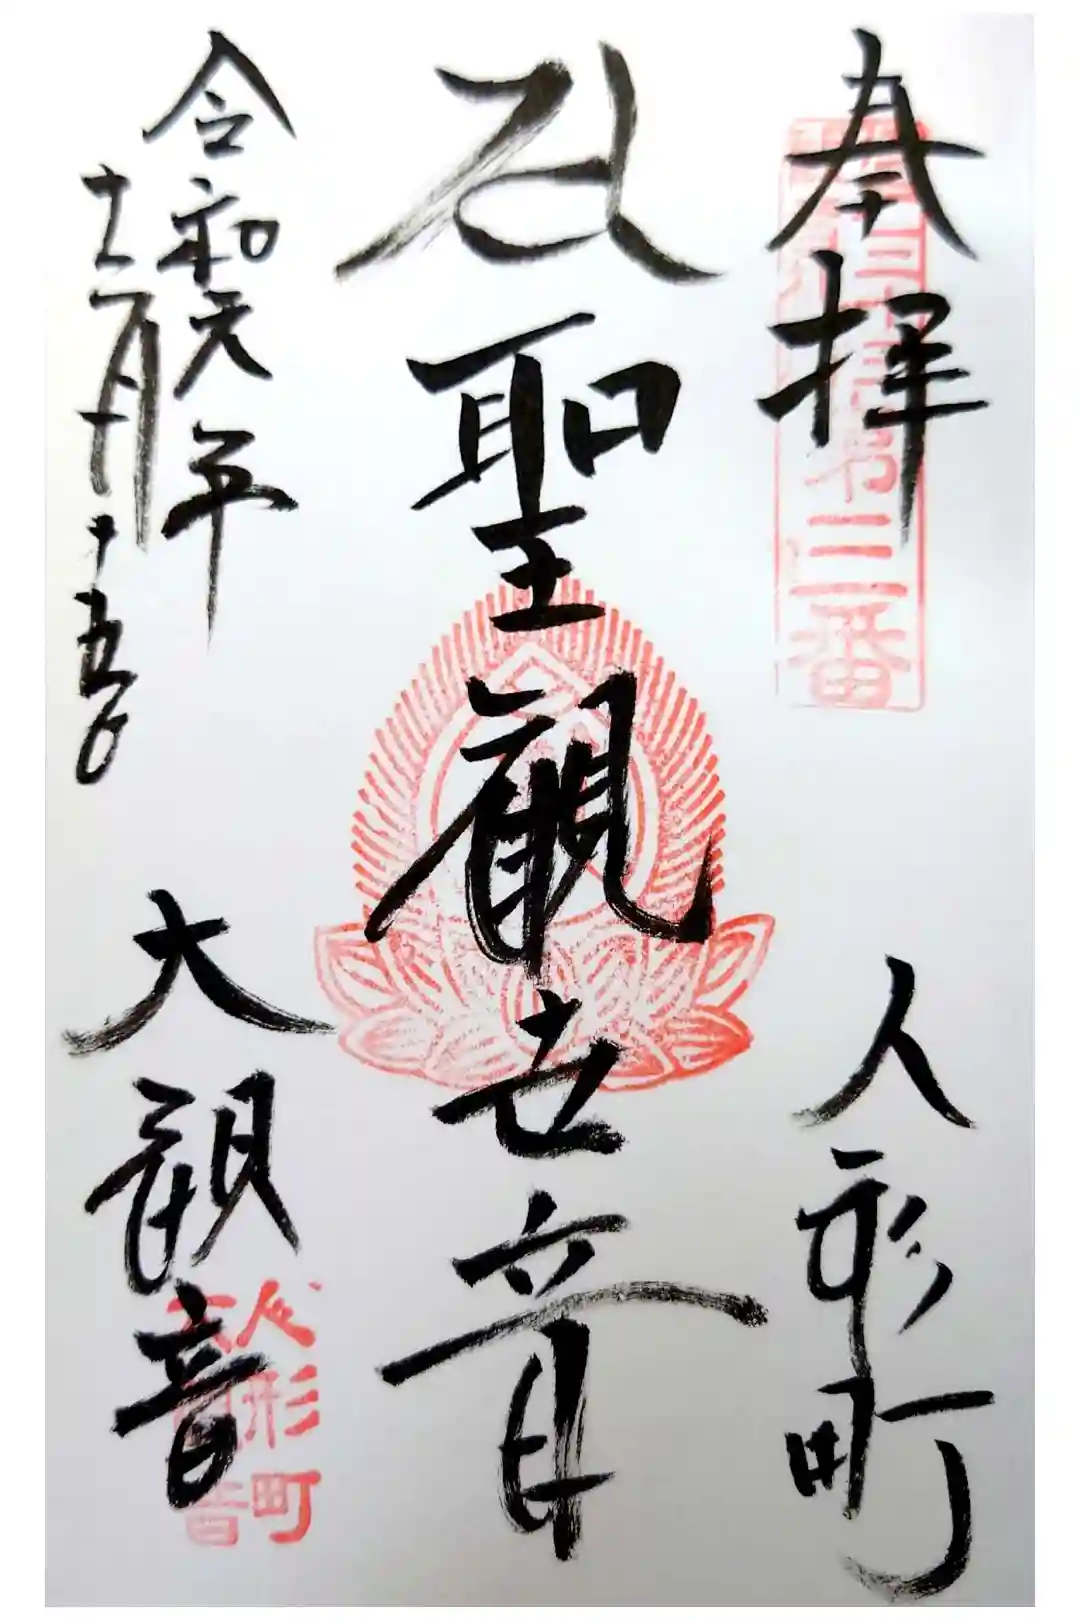 奉拝
第三番
人形町
聖觀世音
令和元年
十二月十五日
大観音
人形町
大観音